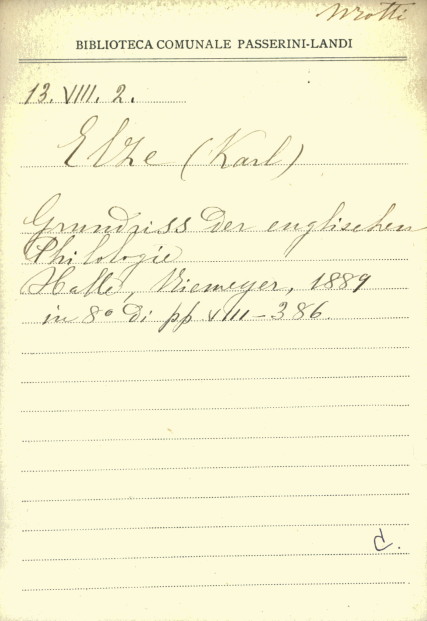 Wrotti
BIBLIOTECA COMUNALE PASSERINI-LANDI
13. VIII. 2.
Elze (Karl)
Grundriss der englischen
Philologie
Halle, Niemeyer, 1889
in 8° di pp VIII-386.
C.